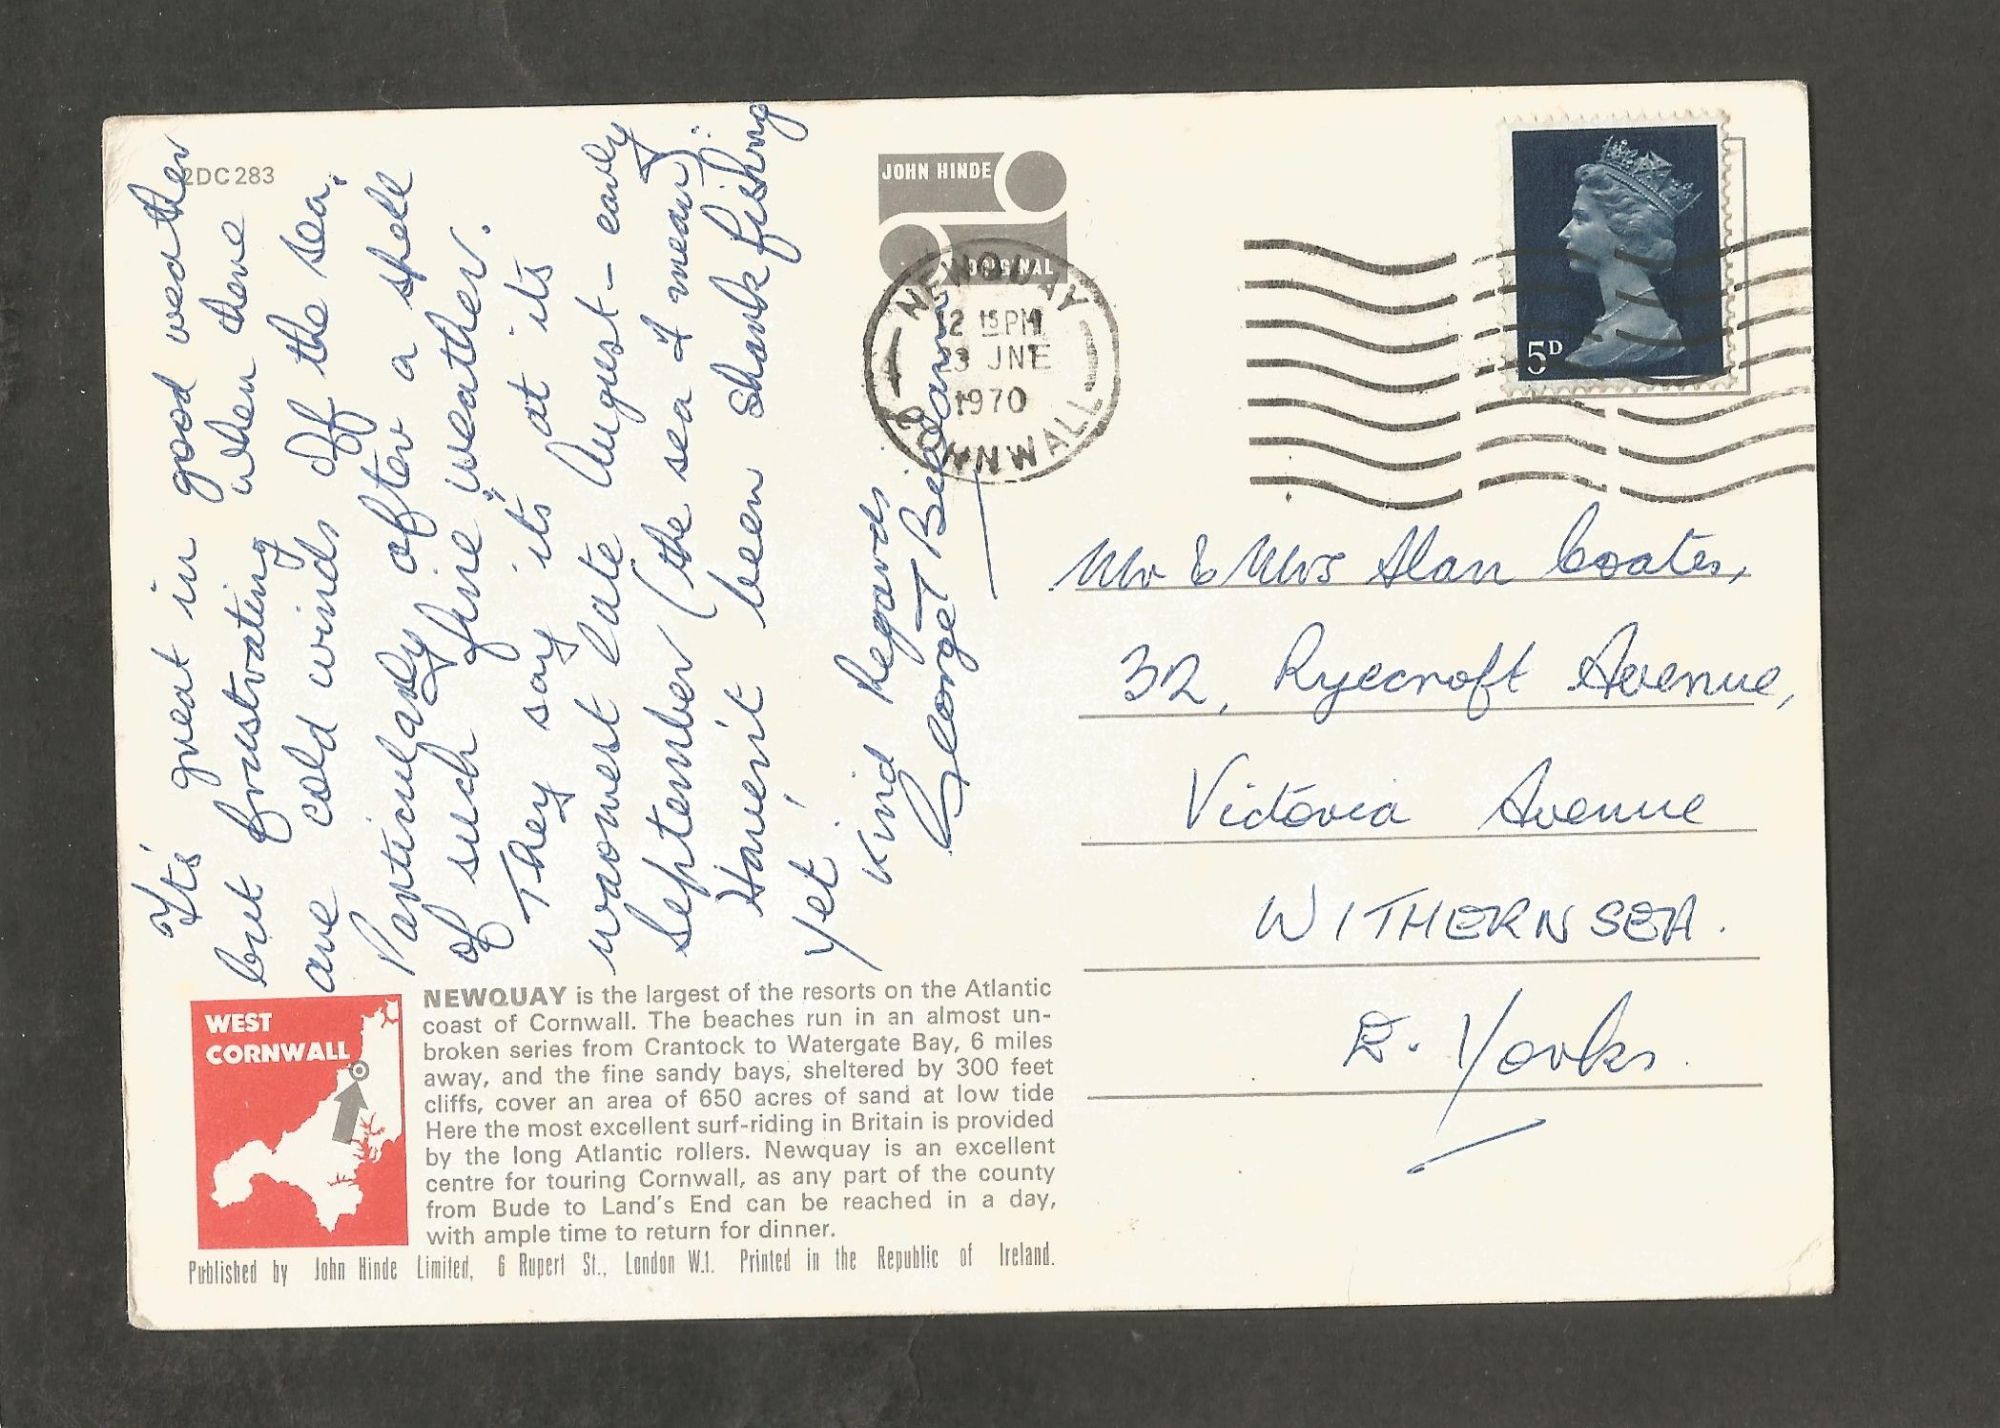 2DC283
It's great in good weather
but frustrating when there
are cold winds off the sea.
Particularly after a spell
of such fine weather.
They say it's at its
warmest late August - early
September (the sea I mean)
Haven't been shark fishing
yet!
Kind Regards
George T
JOHN HINDE
ORIGINAL
NEWQUAY
12 15 PM
JNE
1970
CORNWALL
5D
Mr & Mrs Alan Coates,
32, Ryecroft Avenue,
Victoria Avenue
WITHERNSEA.
E. Yorks.
WEST
CORNWALL
NEWQUAY is the largest of the resorts on the Atlantic
coast of Cornwall. The beaches run in an almost un-
broken series from Crantock to Watergate Bay, 6 miles
away, and the fine sandy bays, sheltered by 300 feet
cliffs, cover an area of 650 acres of sand at low tide
Here the most excellent surf-riding in Britain is provided
by the long Atlantic rollers. Newquay is an excellent
centre for touring Cornwall, as any part of the county
from Bude to Land's End can be reached in a day,
with ample time to return for dinner.
Published by John Hinde Limited, 6 Rupert St., London W.1. Printed in the Republic of Ireland.